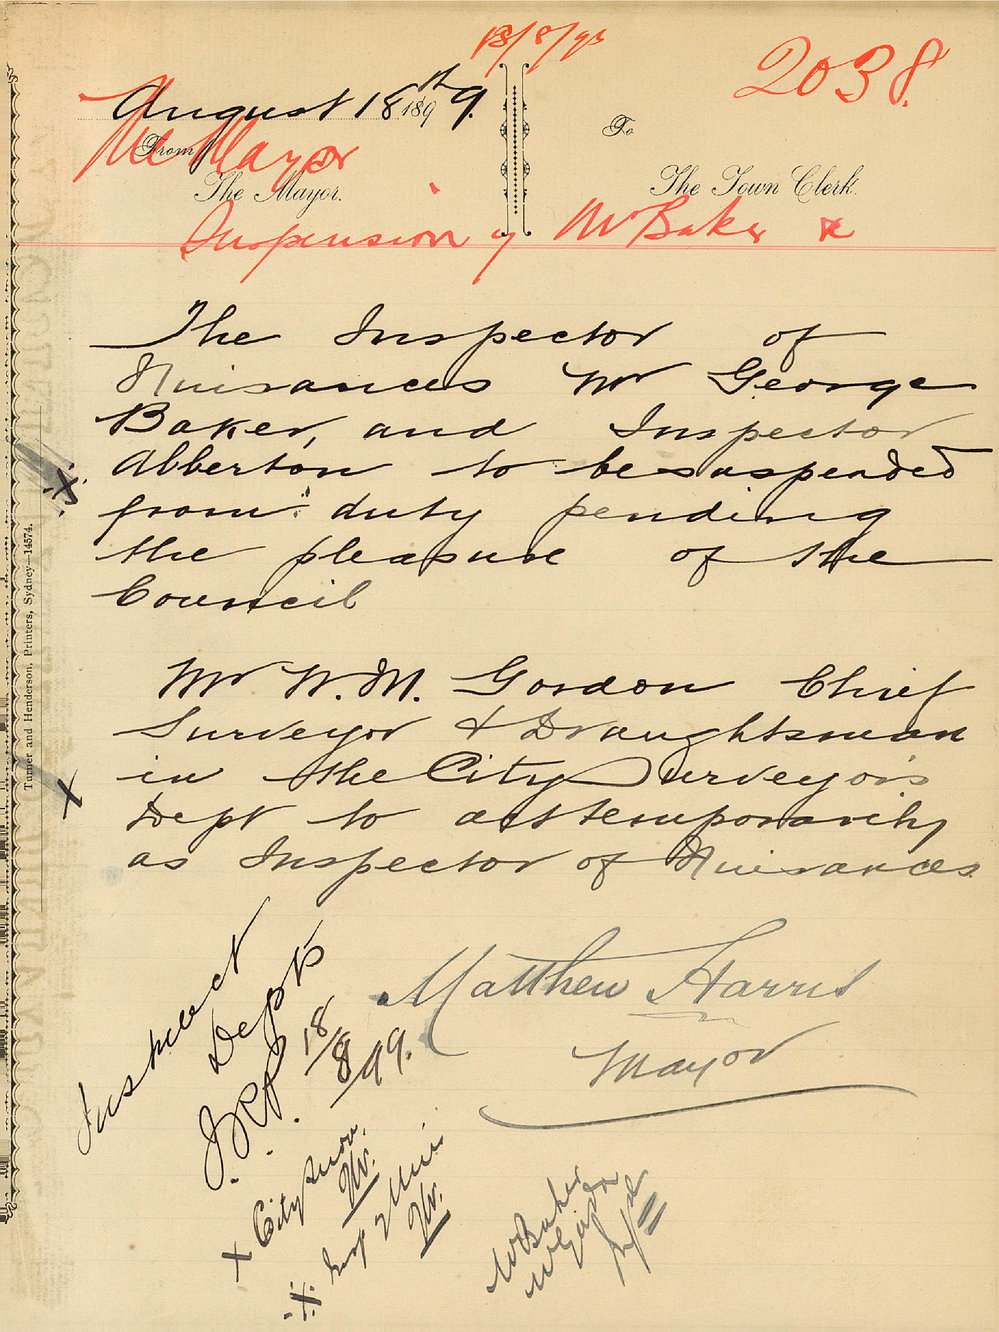 18/8/99
2038.
August 18th 1899.
From
The Mayor
To
The Mayor.
The Town Clerk.
Suspension of Mr Baker &c
The Inspector of
Nuisances Mr George
Baker, and Inspector
Abberton to be suspended
from duty pending
the pleasure of the
Council
Mr W. M. Gordon Chief
Surveyor & Draughtsman
in the City Surveyor's
Dept to act temporarily
as Inspector of Nuisances
Matthew Harris
Mayor
Instruct
Depts
18/8/99.
x City Surv.
Insp Nuis
Mr Baker
Mr Gordon
Turner and Henderson, Printers, Sydney—14574.